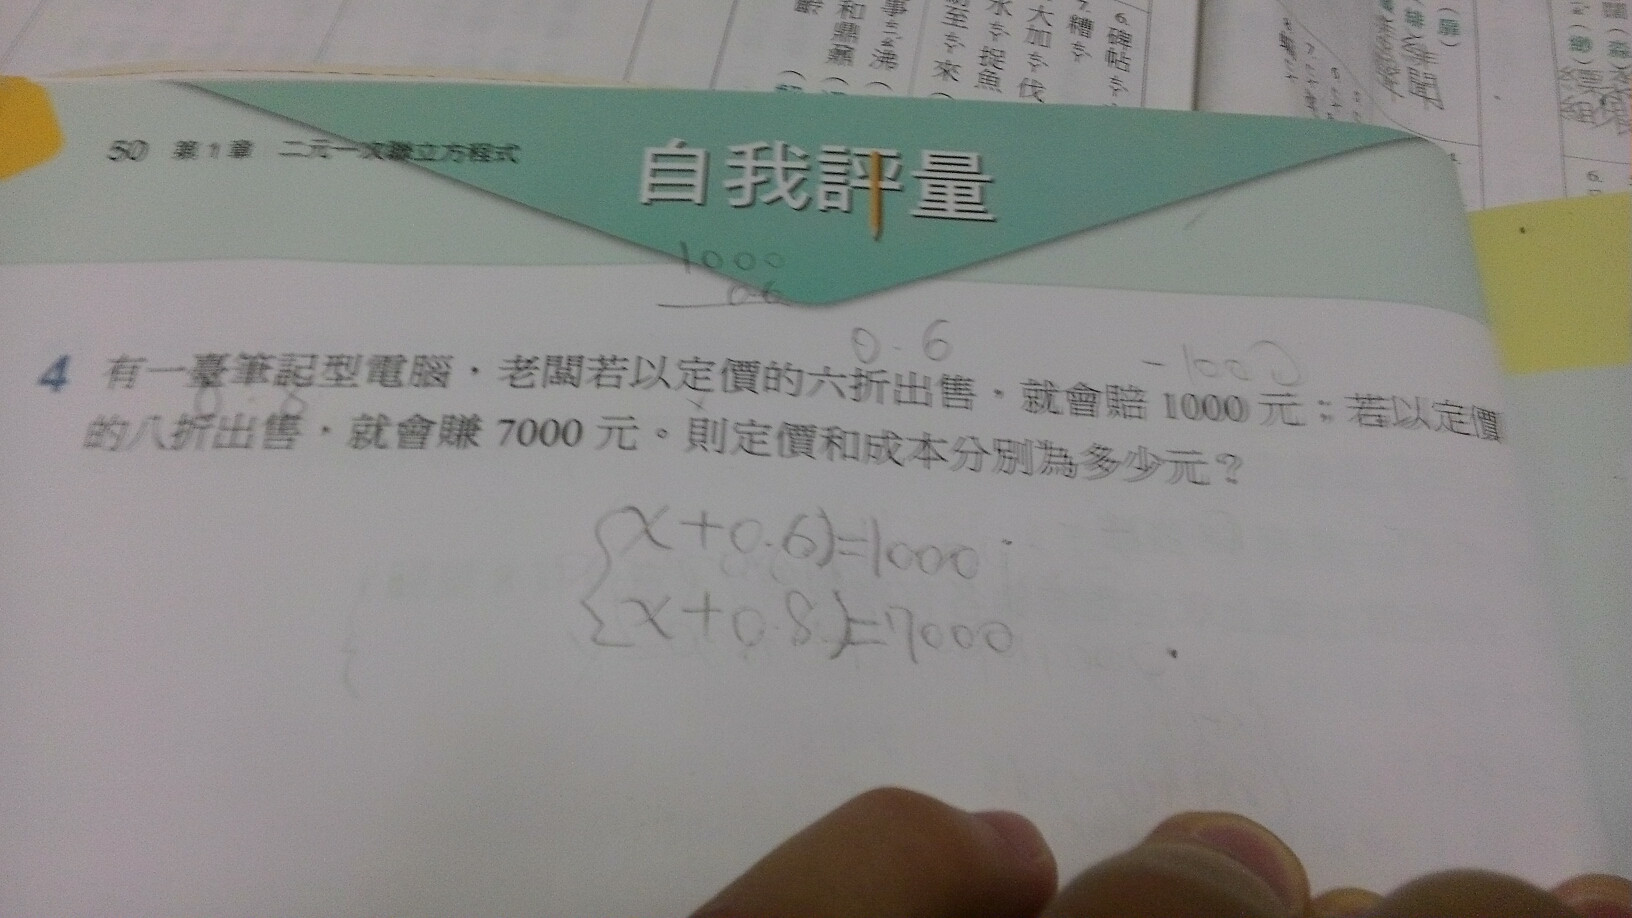 6. 碑帖
7. 糟
大加 伐
水 捉魚
至 來
事 沸
和鼎蕭
緋聞
6.
50 第1章 二元一次聯立方程式
自我評量
1000
0.6
0.6
-1000
4 有一臺筆記型電腦，老闆若以定價的六折出售，就會賠 1000 元；若以定價
0.8
x
的八折出售，就會賺 7000 元。則定價和成本分別為多少元？
{x+0.6)=1000
{x+0.8)=7000